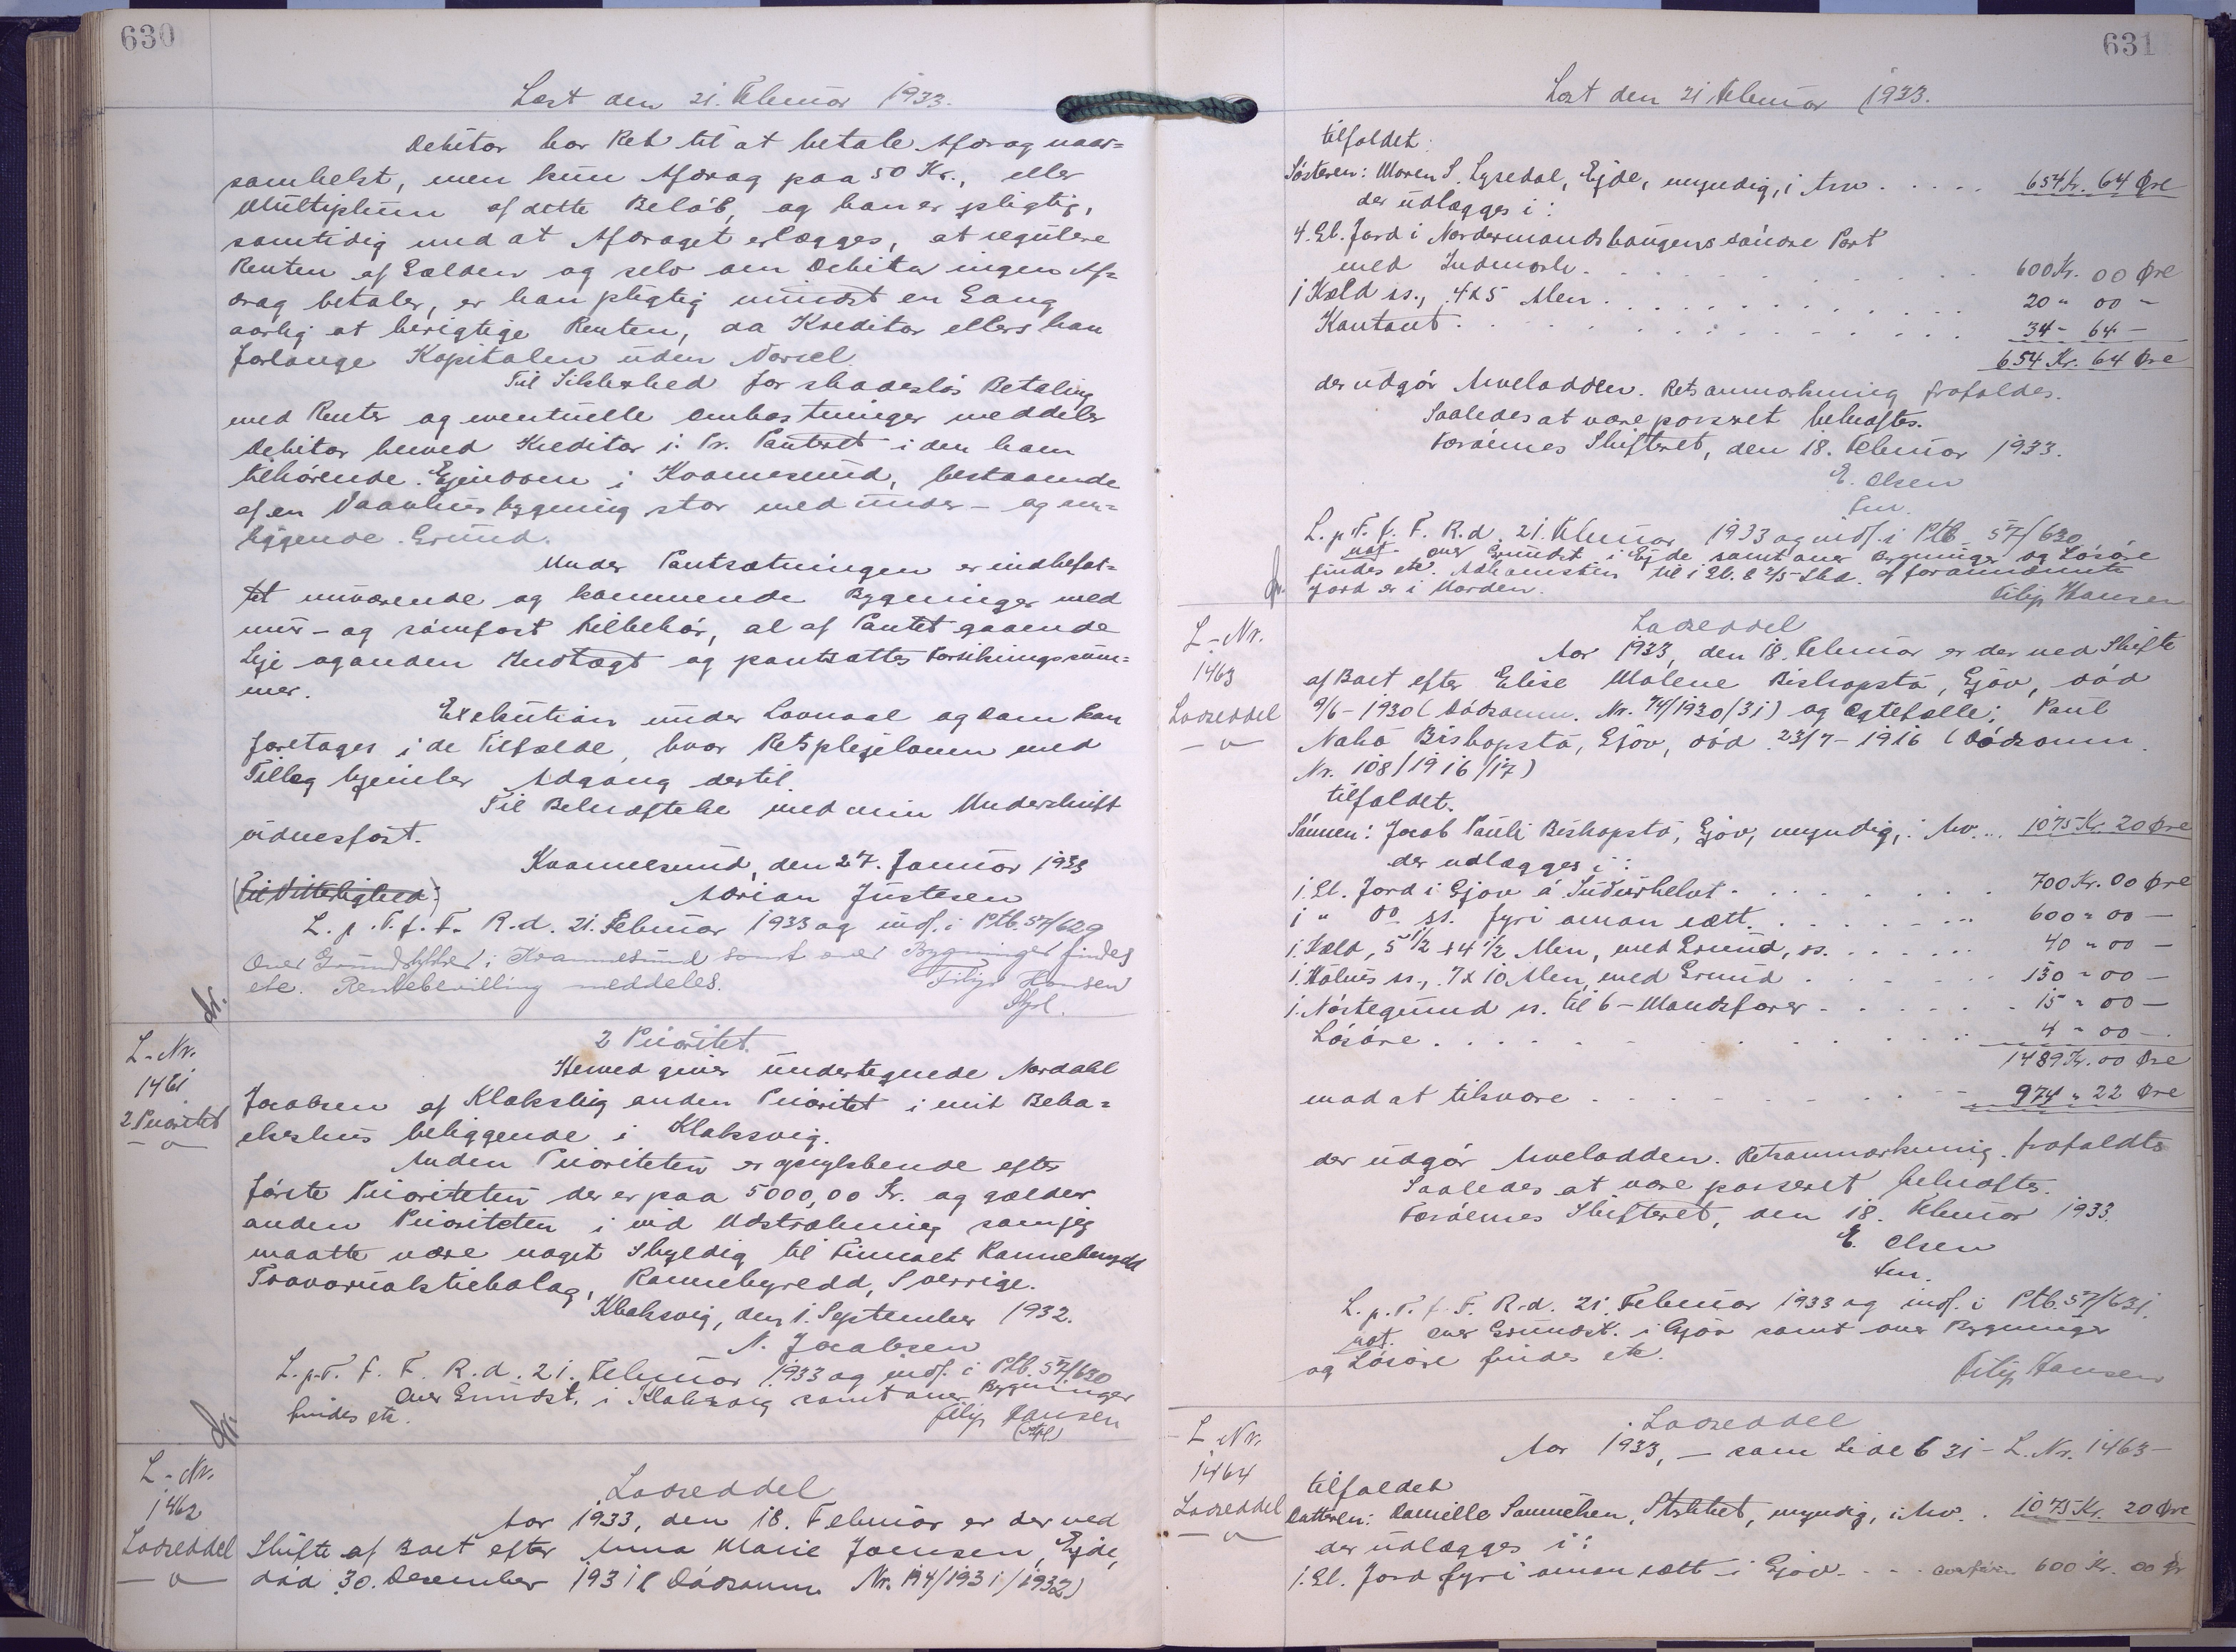 630
Læst den 21. Februar 1933.
Debitor har Ret til at betale Afdrag naar=
somhelst, men kun Afdrag paa 50 Kr., eller
Multiplum af dette Beløb, og han er pligtig,
samtidig med at Afdraget erlægges, at regulere
Renten af Gælden og selv om Debitor ingen Af=
drag betaler, er han pligtig mindst en Gang
aarlig at berigtige Renten, da Kreditor ellers kan
forlange Kapitalen uden Varsel.
Til Sikkerhed for skadesløs Betaling
med Renter og eventuelle Omkostninger meddeler
Debitor herved Kreditor 1. Pr. Panteret i den ham
tilhørende Ejendom i Kvannesund, bestaaende
af en Vaanhusbygning stor med under- og om=
liggende Grund.
Under Pantsætningen er indbefat=
tet nuværende og kommende Bygninger med
mur- og sømfast Tilbehør, al af Pantet gaaende
Leje og anden Indtægt og pantsattes Forsikringssum=
mer.
Exekution under Lovmaal og dom kan
foretages i de Tilfælde, hvor Retsplejeloven med
Tillæg hjemler Adgang dertil.
Til Bekræftelse med min Underskrift
vidnesfast.
Kvannesund, den 27. Januar 1933
(Til Vitterlighed:) Adrian Justesen
L. p. T. f. F. R. d. 21. Februar 1933 og indf. i Ptb. 57/629
Over Grundstykket i Kvannesund samt over Bygninger findes
etc. Rentebevilling meddeles. Filip Hansen
Kst.
L-Nr.
1461
2 Prioritet
2 Prioritet.
Herved giver undertegnede Nordahl
Jacobsen af Klaksvig anden Prioritet i mit Bebo=
elseshus beliggende i Klaksvig.
Anden Prioriteten er opryk­kende efter
første Prioriteten der er paa 5000,00 Kr. og gælder
anden Prioriteten i vid Udstrækning som jeg
maatte være noget skyldig til Firmaet Rannebergs
Travaruaktiebolag, Ranneby­redd, Sverrige.
Klaksvig, den 1. September 1932.
N. Jacobsen
L. p. T. f. F. R. d. 21. Februar 1933 og indf. i Ptb. 57/630
Over Grundst. i Klaksvig samt over Bygninger
findes etc. Filip Hansen
(Kst)
L-Nr.
1462
Lodseddel
Lodseddel
Aar 1933, den 18. Februar er der ved
Skifte af Boet efter Anna Marie Joensen, Ejde,
død 30. December 1931 (Dødsanm. Nr. 194/1931/1932)
631
Læst den 21 Februar 1933.
tilfaldet:
Søsteren: Maren S. Lysedal, Ejde, myndig, i Arv . . . . . 654 Kr. 64 Øre
der udlægges i:
4. Gl. Jord i Nordermandshaugens søndre Part
med Indmark. . . . . 600 Kr. 00 Øre
1 Kæld ss., 4x5 Alen . . . . 20 " 00 -
Kontant . . . . 34 - 64 -
654 Kr. 64 Øre
der udgør Arvelodden. Retsanmærkning frafaldes.
Saaledes at være passeret bekræftes.
Færøernes Skifteret, den 18. Februar 1933.
E. Olsen
fm.
L. p. T. f. F. R. d. 21. Februar 1933 og indf. i Ptb 57/630
ndf. over Grundst. i Ejde samt over Bygninger og Løsøre
findes etc. Adkomsten til 1 Gl. 8 2/5 Skd. af forannævnte
Jord er i Orden. Filip Hansen
L-Nr.
1463
Lodseddel
Lodseddel
Aar 1933, den 18. Februar er der ved Skifte
af Boet efter Elise Malene Biskopstø, Gjov, død
9/6-1930 (Dødsanm. Nr. 74/1930/31) og Ægtefælle; Paul
Nahå Biskopstø, Gjov, død 23/7-1916 (Dødsanm.
Nr. 108/1916/17)
tilfaldet.
Sønnen: Jacob Pauli Biskopstø, Gjov, myndig, i Arv. . . 1075 Kr. 20 Øre
der udlægges i:
1. Gl. Jord i Gjov á Suðurhelvt . . . . 700 Kr. 00 Øre
1 " do ss. fyri oman ætt. . . . . 600 " 00 -
1. Kæld, 5 1/2 x 4 1/2 Alen, med Grund, ss. . . . . 40 " 00 -
1. Hølus ss., 7 x 10 Alen, med Grund . . . . 130 " 00 -
1. Nøstegrund ss. til 6-Mandsfarer . . . . 15 " 00 -
Løsøre . . . . 4 " 00 -
1489 Kr. 00 Øre
mod at tilsvare . . . . 974 " 22 Øre
der udgør Arvelodden. Retsanmærkning frafaldtes
Saaledes at være passeret bekræftes.
Færøernes Skifteret, den 18. Februar 1933.
E. Olsen
fm.
L. p. T. f. F. R. d. 21. Februar 1933 og indf. i Ptb. 57/631.
ndf. over Grundst. i Gjov samt over Bygninger
og Løsøre findes etc.
Filip Hansen
L-Nr.
1464
Lodseddel
Lodseddel
Aar 1933, - som Side 631 - L. Nr. 1463 -
tilfaldet
Datteren: Danielle Samuelsen, myndig, i Arv. . 1075 Kr. 20 Øre
der udlægges i:
1. Gl. Jord fyri oman ætt i Gjov . . . overføres 600 Kr. 00 Ør